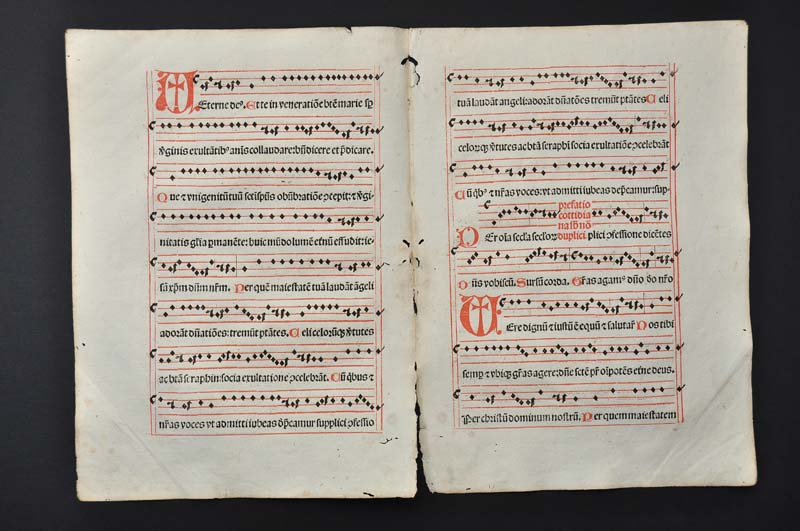 Eterne deꝰ. Et te in veneratiōe btē marie sp̄
v̄ginis exultātibꝰ aīs collaudare: bn̄dicere et p̄dicare.
Que ⁊ vnigenitū tuū sct̄i sp̄us obūbratiōe ꝯcepit: ⁊ v̄gi-
nitatis gl̄ia ꝑmanēte: huic mūdo lumē et̄nū effudit: ie-
sū xp̄m dn̄m nr̄m. Per quē maiestatē tuā laudāt āgeli
adorāt dn̄atiōes: tremūt ptātes. Celi celorūqꝫ v̄tutes
ac btā seraphin: socia exultatione ꝯcelebrāt. Cū qbus ⁊
nr̄as voces vt admitti iubeas dep̄camur supplici ꝯfessio
tuā laudāt angeli: adorāt dn̄atōes tremūt ptātes Celi
celorūqꝫ v̄tutes ac btā seraphī socia exultatiōe ꝯcelebrāt
Cū qbꝰ ⁊ nr̄as voces: vt admitti iubeas dep̄camur: sup-
prefatio
cottidia
na
duplici
Per oīa secla seclorꝫ plici ꝯfessione dicētes
Dn̄s vobiscū. Sursū corda. Gr̄as agamꝰ dn̄o dō nr̄o
Uere dignū ⁊ iustū ē equū ⁊ salutar̄ Nos tibi
semꝑ ⁊ vbiqꝫ gr̄as agere: dn̄e sct̄e pr̄ oīpotēs et̄ne deus.
Per christū dominum nostrū. Per quem maiestatem